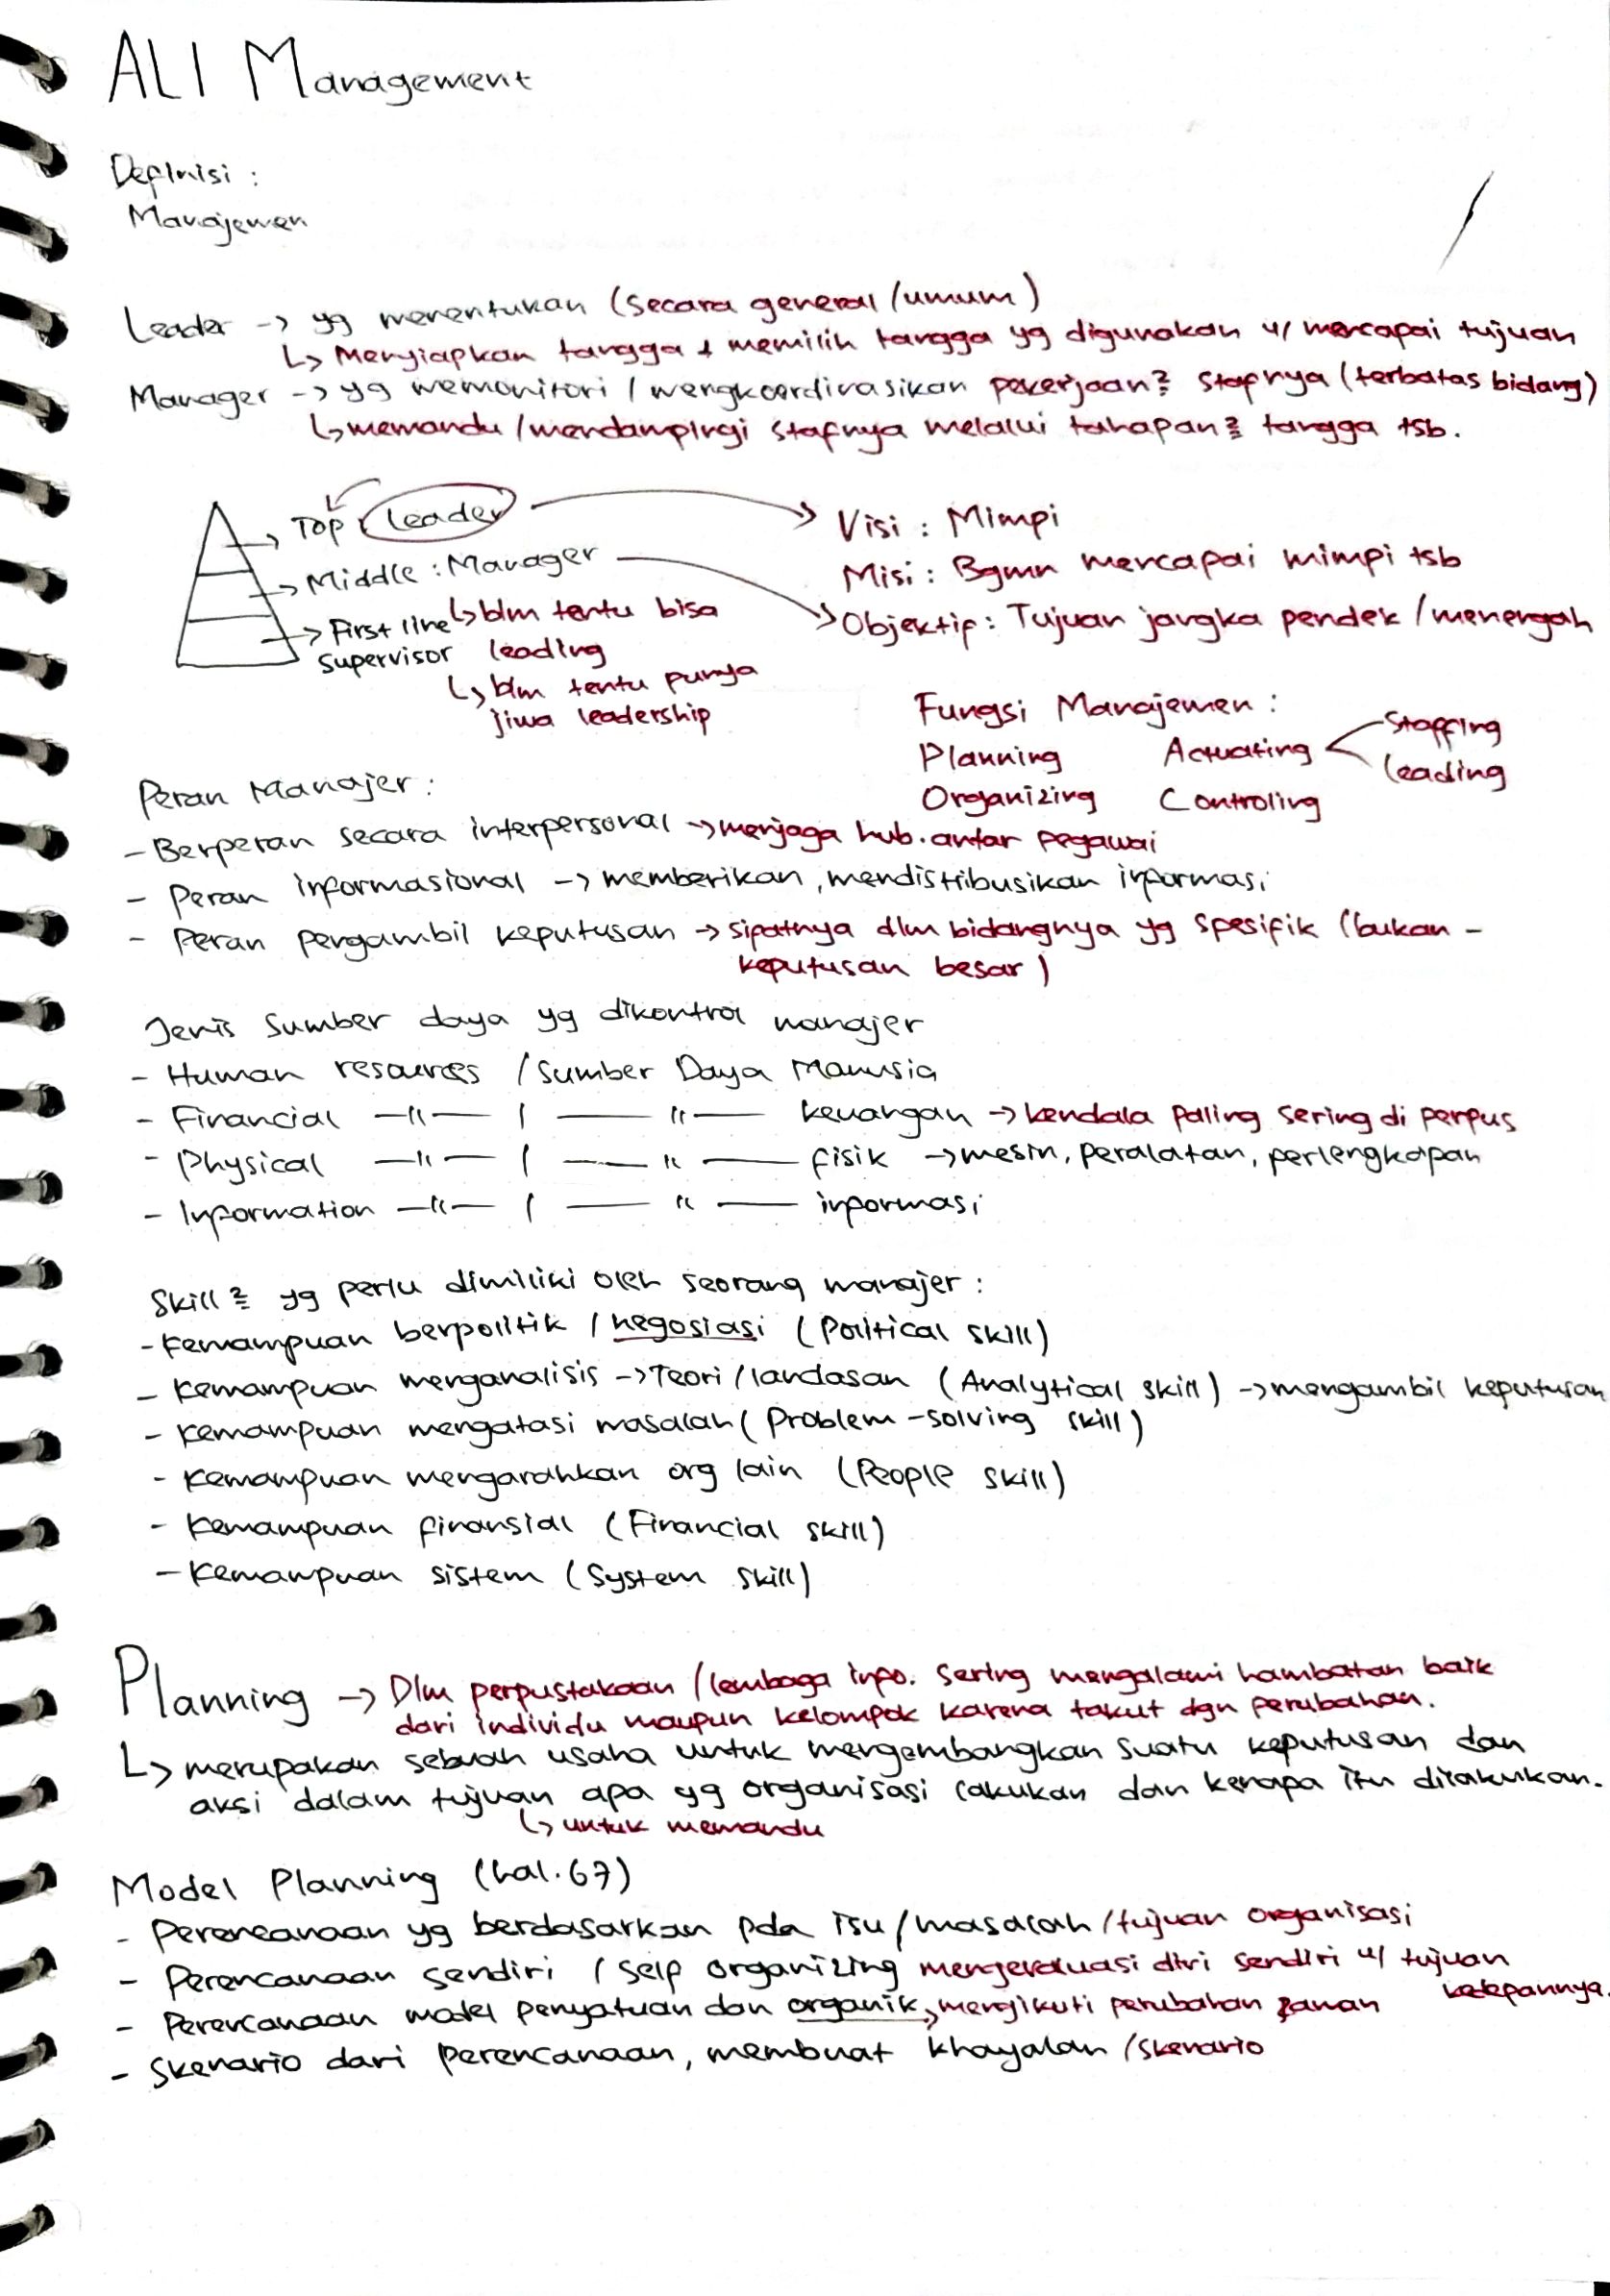 ALI Management
Definisi :
Manajemen
Leader -> yg menentukan (secara general/umum)
↳ Menyiapkan tangga + memilih tangga yg digunakan u/ mencapai tujuan
Manager -> yg memonitori / mengkoordinasikan pekerjaan² stafnya (terbatas bidang)
↳ memandu/mendampingi stafnya melalui tahapan² tangga tsb.
→ Top : Leader
→ Middle : Manager
↳ blm tentu bisa leading
↳ blm tentu punya jiwa leadership
→ First line supervisor
Visi : Mimpi
Misi : Bgmn mencapai mimpi tsb
Objektif : Tujuan jangka pendek / menengah
Fungsi Manajemen :
Planning Actuating < Staffing
Leading
Organizing Controling
Peran Manajer :
- Berperan secara interpersonal -> menjaga hub. antar pegawai
- Peran informasional -> memberikan, mendistribusikan informasi
- Peran pengambil keputusan -> sifatnya dlm bidangnya yg spesifik (bukan -
keputusan besar)
Jenis sumber daya yg dikontrol manajer
- Human resources / Sumber Daya Manusia
- Financial —"— / —"— keuangan -> kendala paling sering di perpus
- Physical —"— / —"— fisik -> mesin, peralatan, perlengkapan
- Information —"— / —"— informasi
Skill² yg perlu dimiliki oleh seorang manajer :
- Kemampuan berpolitik / negosiasi (Political skill)
- Kemampuan menganalisis -> Teori/landasan (Analytical skill) -> mengambil keputusan
- Kemampuan mengatasi masalah (Problem-solving skill)
- Kemampuan mengarahkan org lain (People skill)
- Kemampuan finansial (Financial skill)
- Kemampuan sistem (System skill)
Planning -> Dlm perpustakaan / lembaga info. sering mengalami hambatan baik
dari individu maupun kelompok karena takut dgn perubahan.
↳ merupakan sebuah usaha untuk mengembangkan suatu keputusan dan
aksi dalam tujuan apa yg organisasi lakukan dan kenapa itu dilakukan.
↳ untuk memandu
Model Planning (hal. 67)
- Perencanaan yg berdasarkan pda isu/masalah/tujuan organisasi
- Perencanaan sendiri / self organizing mengevaluasi diri sendiri u/ tujuan
kedepannya.
- Perencanaan model penyatuan dan organik, mengikuti perubahan zaman
- Skenario dari perencanaan, membuat khayalan / skenario